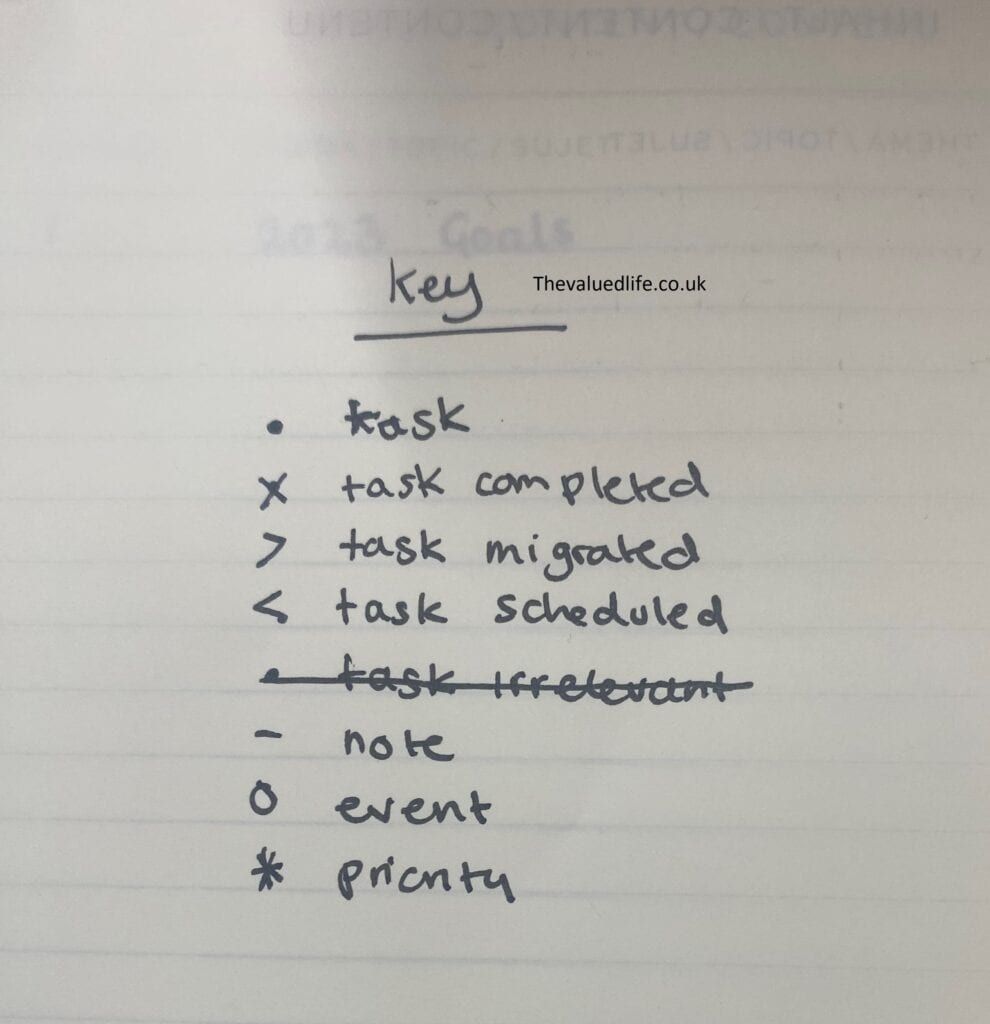 2023 Goals
Key Thevaluedlife.co.uk
• task
x task completed
> task migrated
< task scheduled
• task irrelevant
- note
o event
* priority